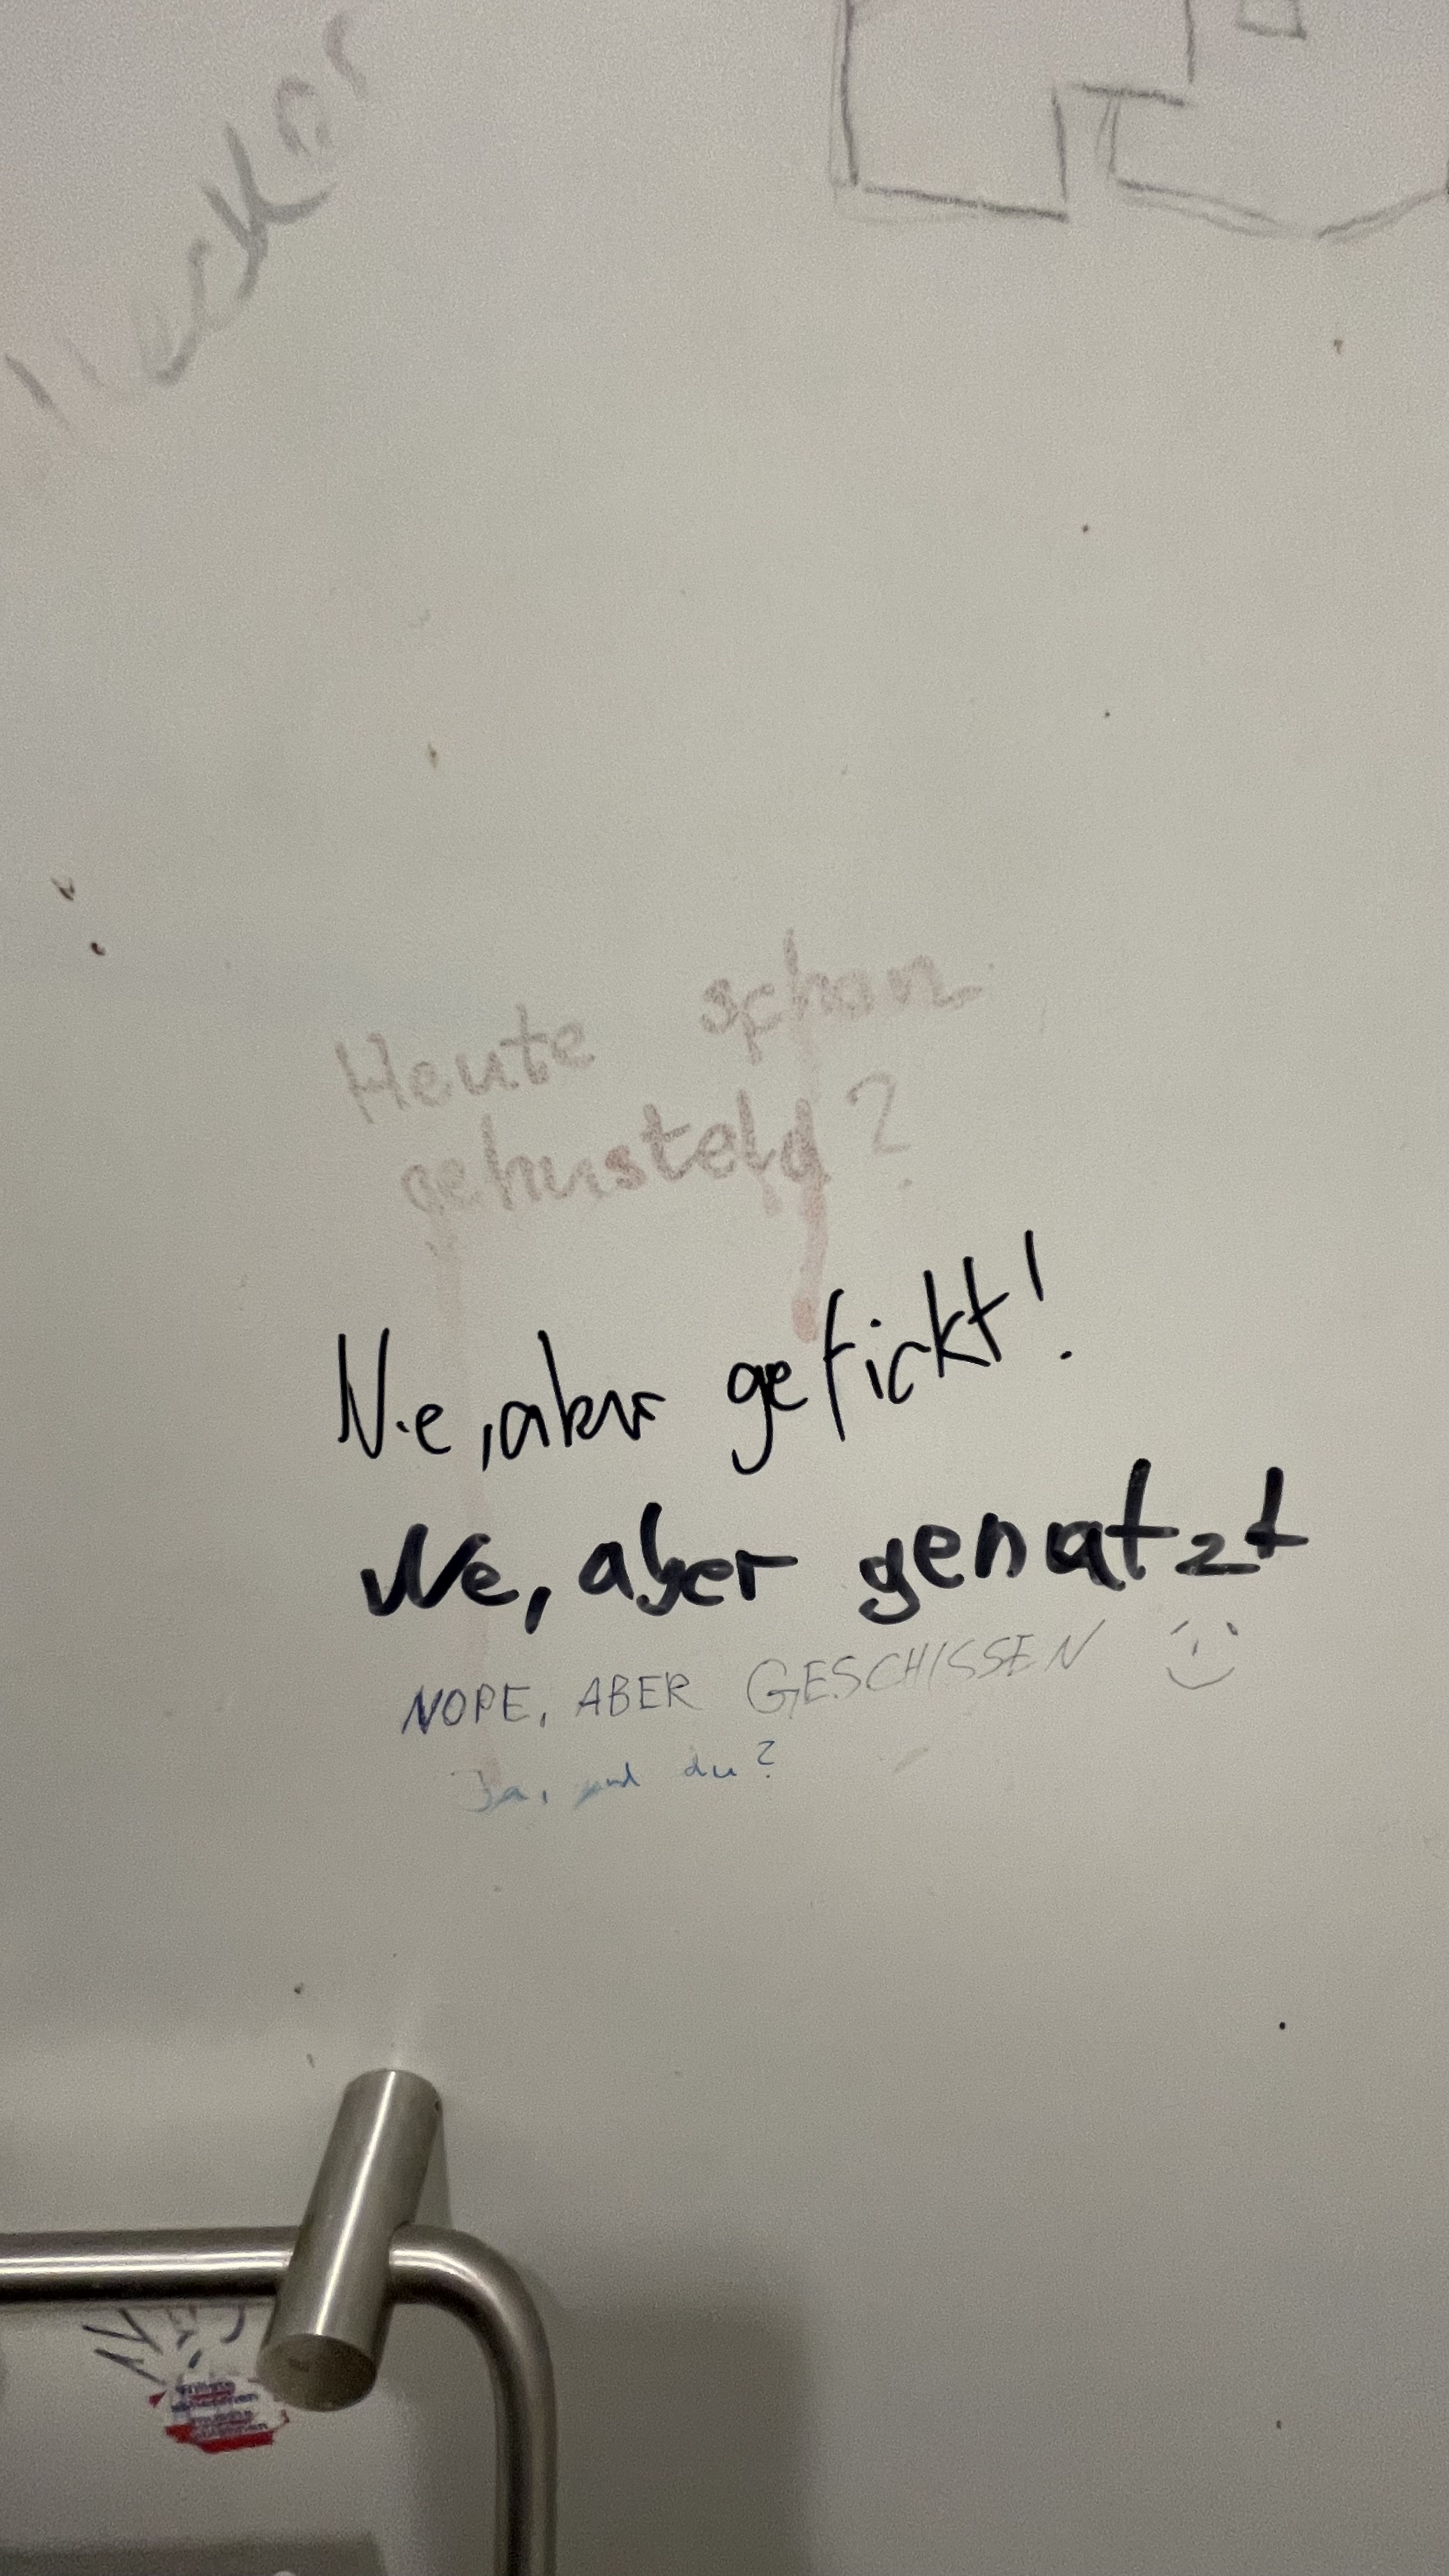 Heute schon
gehusteld?
Ne, aber gefickt!
Ne, aber genatzt
NOPE, ABER GESCHISSEN
Ja, und du?